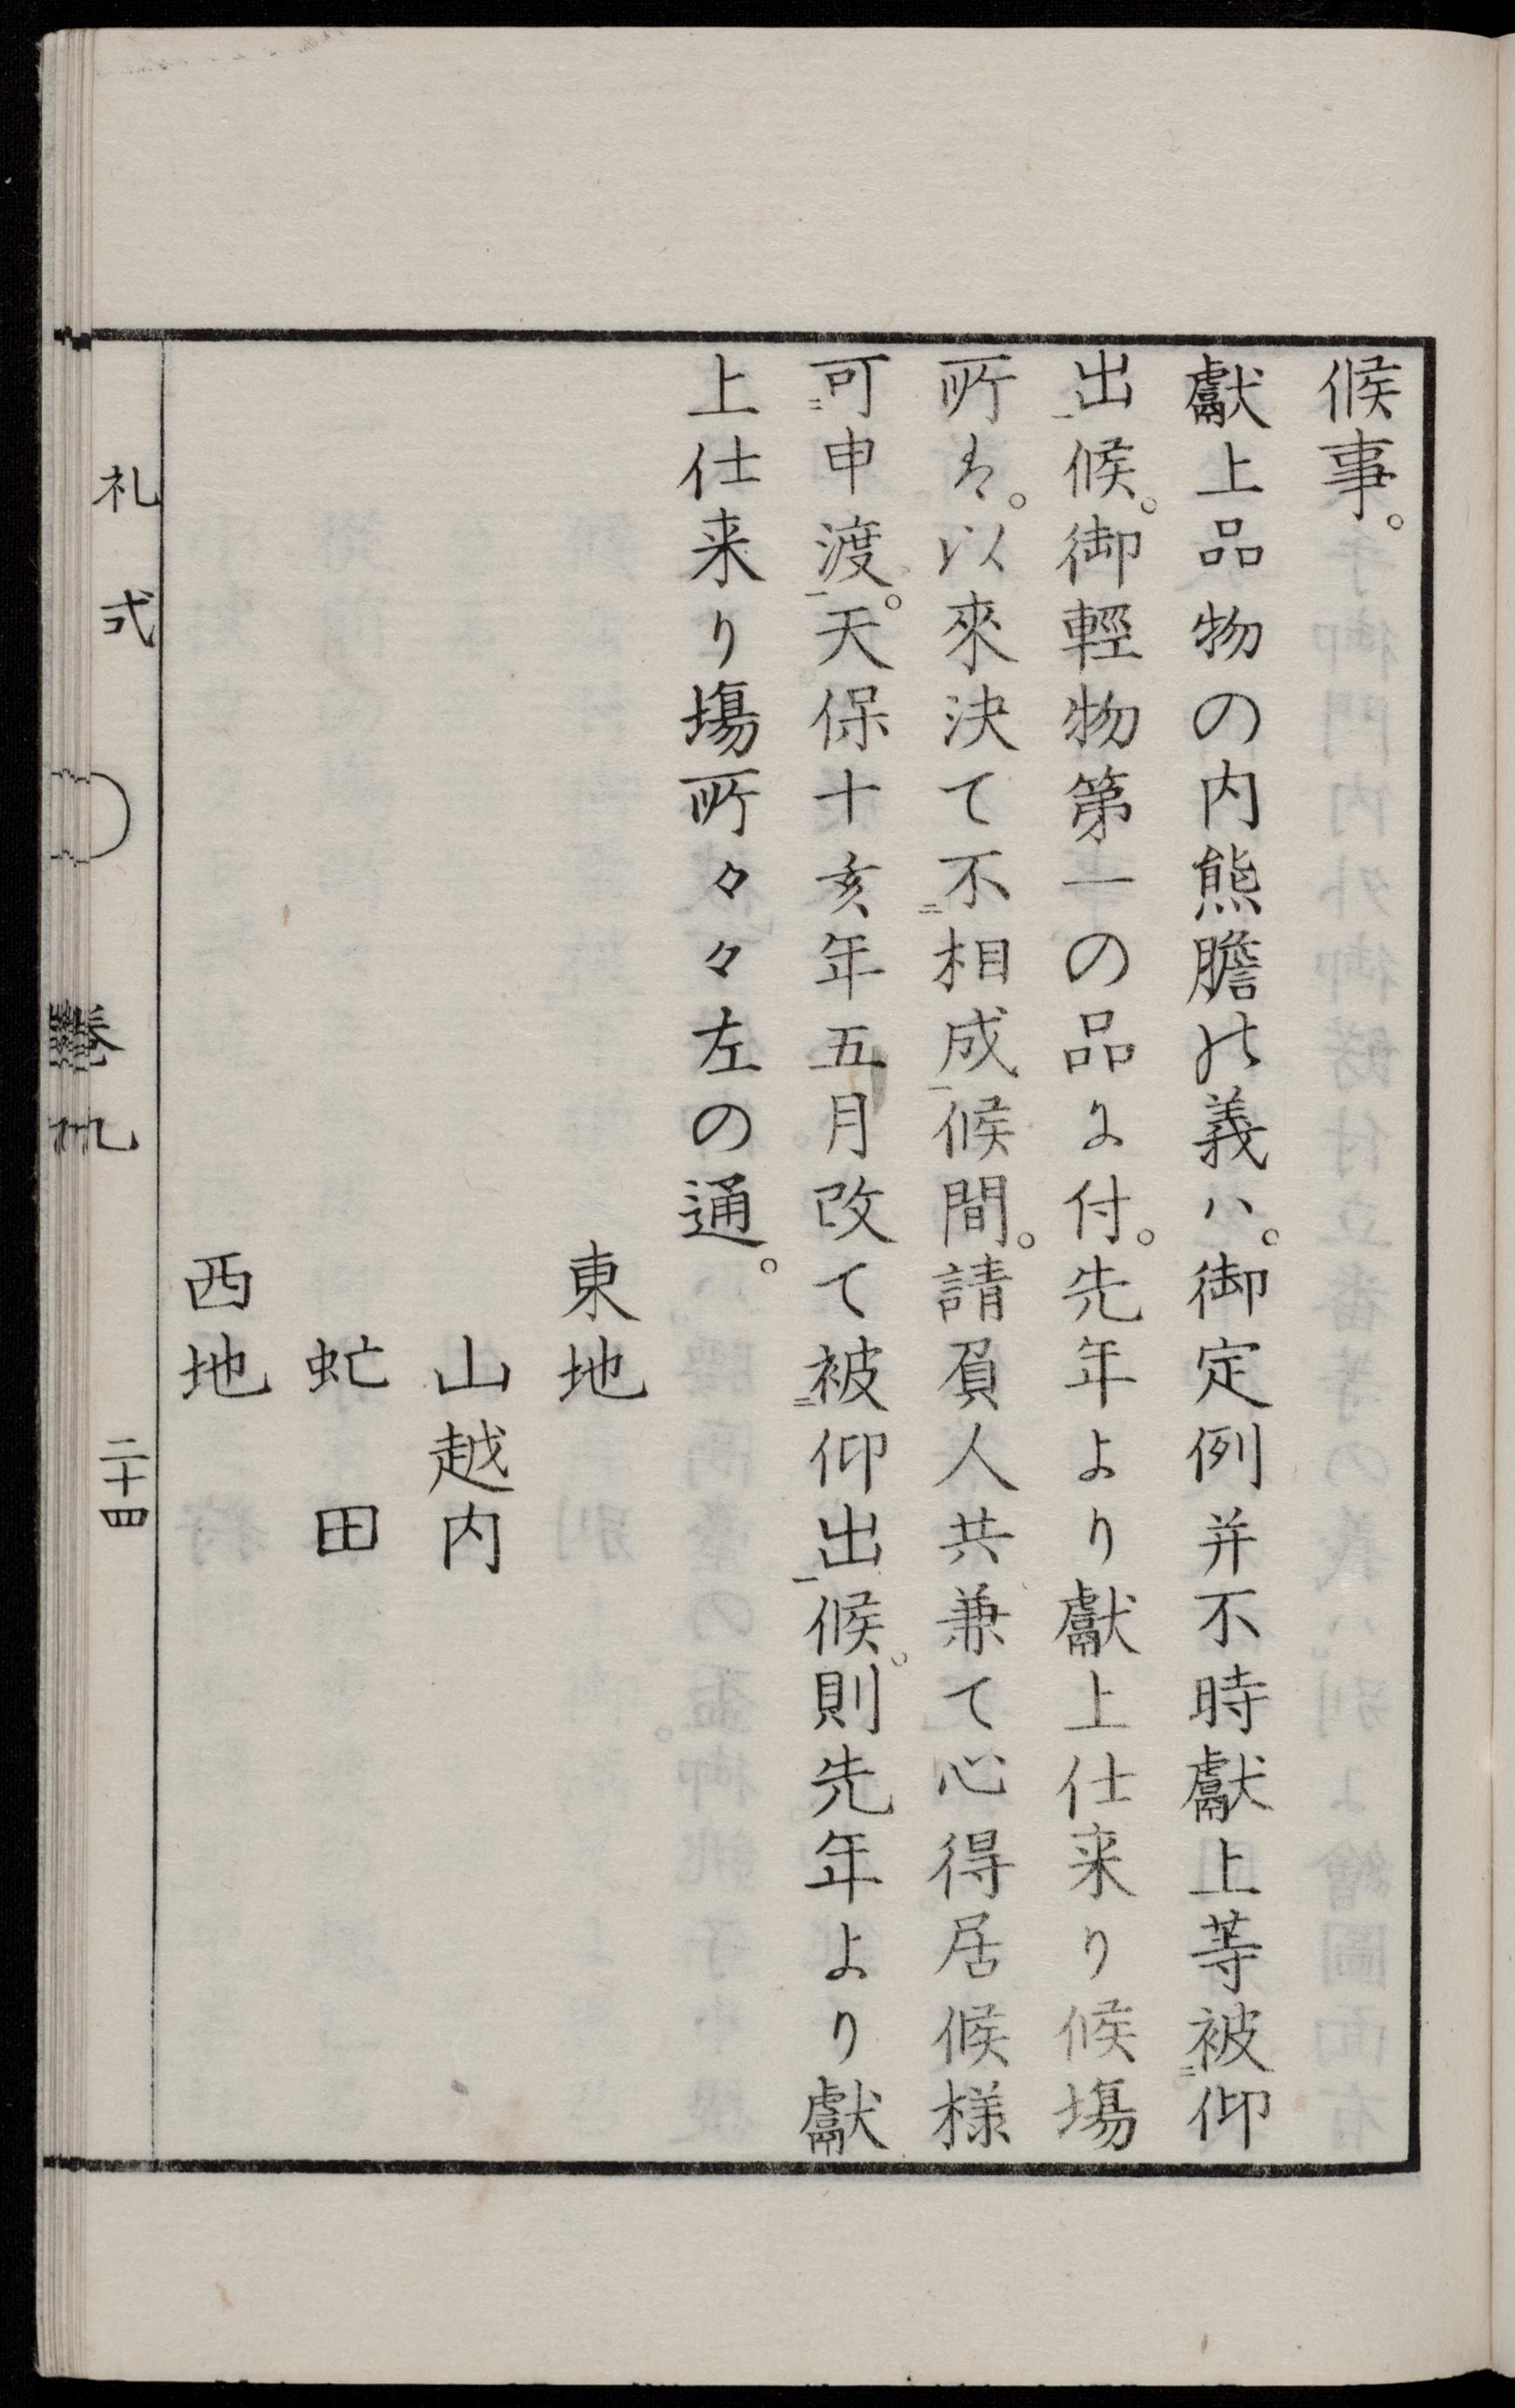 候事。
獻上品物の内熊膽の義ハ。御定例并不時獻上等被二仰
出一候。御輕物第一の品に付。先年より獻上仕来り候塲
所は。以來決て不二相成一候間。請負人共兼て心得居候様
可二申渡一。天保十亥年五月改て被二仰出一候。則先年より獻
上仕来り塲所々々左の通。
東地
山越内
虻田
西地
礼式 巻九 二十四